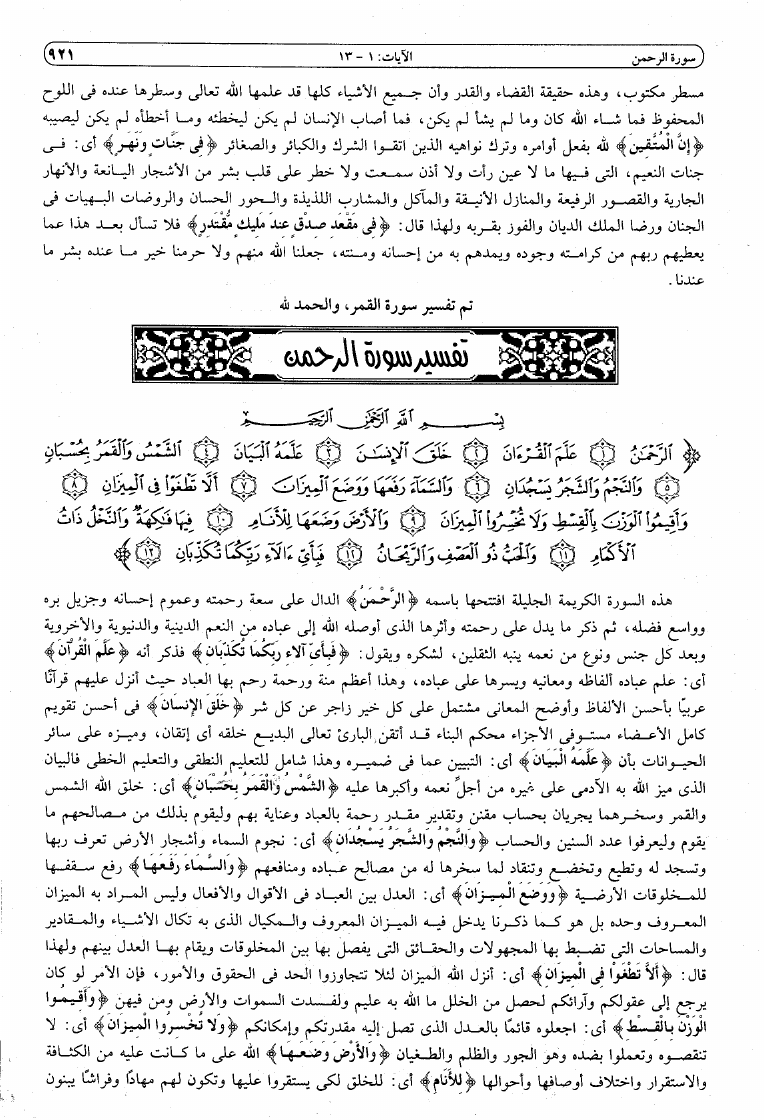 سورة الرحمن الآيات: ١ - ١٣ ٩٢١
مسطر مكتوب، وهذه حقيقة القضاء والقدر وأن جميع الأشياء كلها قد علمها الله تعالى وسطرها عنده فى اللوح
المحفوظ فما شاء الله كان وما لم يشأ لم يكن، فما أصاب الإنسان لم يكن ليخطئه وما أخطأه لم يكن ليصيبه
﴿إِنَّ الْمُتَّقِينَ﴾ لله بفعل أوامره وترك نواهيه الذين اتقوا الشرك والكبائر والصغائر ﴿فِى جَنَّاتٍ وَنَهَرٍ﴾ أى: فى
جنات النعيم، التى فيها ما لا عين رأت ولا أذن سمعت ولا خطر على قلب بشر من الأشجار اليانعة والأنهار
الجارية والقصور الرفيعة والمنازل الأنيقة والمآكل والمشارب اللذيذة والحور الحسان والروضات البهيات فى
الجنان ورضا الملك الديان والفوز بقربه ولهذا قال: ﴿فِى مَقْعَدِ صِدْقٍ عِندَ مَلِيكٍ مُّقْتَدِرٍ﴾ فلا تسأل بعد هذا عما
يعطيهم ربهم من كرامته وجوده ويمدهم به من إحسانه ومنته، جعلنا الله منهم ولا حرمنا خير ما عنده بشر ما
عندنا.
تم تفسير سورة القمر، والحمد لله
تفسير سورة الرحمن
بِسْمِ اللَّهِ الرَّحْمَٰنِ الرَّحِيمِ
﴿الرَّحْمَٰنُ ١ عَلَّمَ الْقُرْءَانَ ٢ خَلَقَ الْإِنسَانَ ٣ عَلَّمَهُ الْبَيَانَ ٤ الشَّمْسُ وَالْقَمَرُ بِحُسْبَانٍ
٥ وَالنَّجْمُ وَالشَّجَرُ يَسْجُدَانِ ٦ وَالسَّمَاءَ رَفَعَهَا وَوَضَعَ الْمِيزَانَ ٧ أَلَّا تَطْغَوْا فِى الْمِيزَانِ ٨
وَأَقِيمُوا الْوَزْنَ بِالْقِسْطِ وَلَا تُخْسِرُوا الْمِيزَانَ ٩ وَالْأَرْضَ وَضَعَهَا لِلْأَنَامِ ١٠ فِيهَا فَاكِهَةٌ وَالنَّخْلُ ذَاتُ
الْأَكْمَامِ ١١ وَالْحَبُّ ذُو الْعَصْفِ وَالرَّيْحَانُ ١٢ فَبِأَيِّ ءَالَاءِ رَبِّكُمَا تُكَذِّبَانِ ١٣﴾
هذه السورة الكريمة الجليلة افتتحها باسمه ﴿الرَّحْمَنُ﴾ الدال على سعة رحمته وعموم إحسانه وجزيل بره
وواسع فضله، ثم ذكر ما يدل على رحمته وأثرها الذى أوصله الله إلى عباده من النعم الدينية والدنيوية والأخروية
وبعد كل جنس ونوع من نعمه ينبه الثقلين، لشكره ويقول: ﴿فَبِأَىِّ آلاءِ رَبِّكُمَا تُكَذِّبَانِ﴾ فذكر أنه ﴿عَلَّمَ الْقُرْآنَ﴾
أى: علم عباده ألفاظه ومعانيه ويسرها على عباده، وهذا أعظم منة ورحمة رحم بها العباد حيث أنزل عليهم قرآنًا
عربيًا بأحسن الألفاظ وأوضح المعانى مشتمل على كل خير زاجر عن كل شر ﴿خَلَقَ الإِنسَانَ﴾ فى أحسن تقويم
كامل الأعضاء مستوفى الأجزاء محكم البناء قد أتقن البارئ تعالى البديع خلقه أى إتقان، وميزه على سائر
الحيوانات بأن ﴿عَلَّمَهُ الْبَيَانَ﴾ أى: التبيين عما فى ضميره وهذا شامل للتعليم النطقى والتعليم الخطى فالبيان
الذى ميز الله به الآدمى على غيره من أجلِّ نعمه وأكبرها عليه ﴿الشَّمْسُ وَالْقَمَرُ بِحُسْبَانٍ﴾ أى: خلق الله الشمس
والقمر وسخرهما يجريان بحساب مقنن وتقدير مقدر رحمة بالعباد وعناية بهم وليقوم بذلك من مصالحهم ما
يقوم وليعرفوا عدد السنين والحساب ﴿وَالنَّجْمُ وَالشَّجَرُ يَسْجُدَانِ﴾ أى: نجوم السماء وأشجار الأرض تعرف ربها
وتسجد له وتطيع وتخضع وتنقاد لما سخرها له من مصالح عباده ومنافعهم ﴿وَالسَّمَاءَ رَفَعَهَا﴾ رفع سقفها
للمخلوقات الأرضية ﴿وَوَضَعَ الْمِيزَانَ﴾ أى: العدل بين العباد فى الأقوال والأفعال وليس المراد به الميزان
المعروف وحده بل هو كما ذكرنا يدخل فيه الميزان المعروف والمكيال الذى به تكال الأشياء والمقادير
والمساحات التى تضبط بها المجهولات والحقائق التى يفصل بها بين المخلوقات ويقام بها العدل بينهم ولهذا
قال: ﴿أَلاَّ تَطْغَوْا فِى الْمِيزَانِ﴾ أى: أنزل الله الميزان لئلا تتجاوزوا الحد فى الحقوق والأمور، فإن الأمر لو كان
يرجع إلى عقولكم وآرائكم لحصل من الخلل ما الله به عليم ولفسدت السموات والأرض ومن فيهن ﴿وَأَقِيمُوا
الْوَزْنَ بِالْقِسْطِ﴾ أى: اجعلوه قائمًا بالعدل الذى تصل إليه مقدرتكم وإمكانكم ﴿وَلا تُخْسِرُوا الْمِيزَانَ﴾ أى: لا
تنقصوه وتعملوا بضده وهو الجور والظلم والطغيان ﴿وَالأَرْضَ وَضَعَهَا﴾ الله على ما كانت عليه من الكثافة
والاستقرار واختلاف أوصافها وأحوالها ﴿لِلأَنَامِ﴾ أى: للخلق لكى يستقروا عليها وتكون لهم مهادًا وفراشًا يبنون